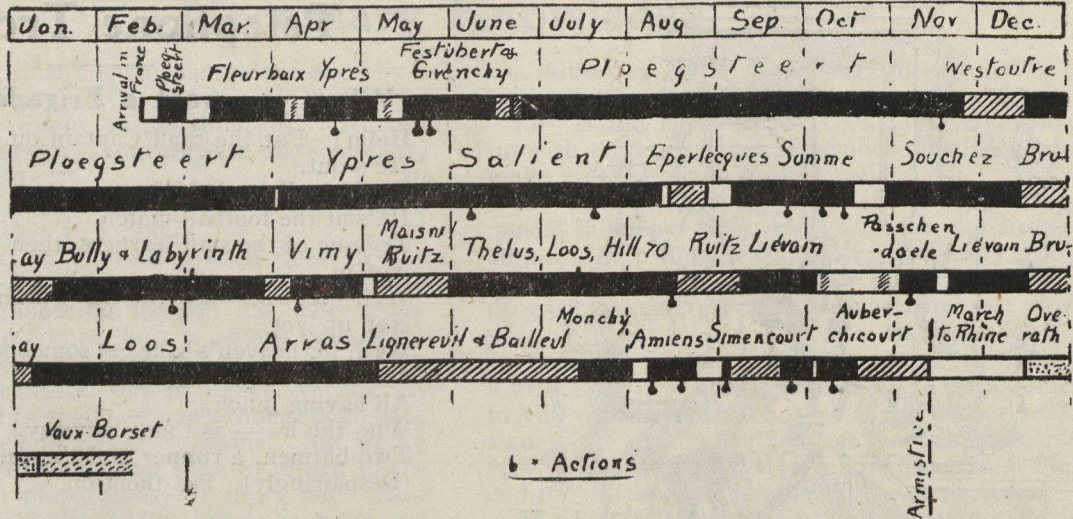 Jan. Feb. Mar. Apr May June July Aug Sep. Oct Nov Dec.
Arrival in France
Ploeg-steert
Fleurbaix Ypres Festubert & Givenchy Ploegsteert Westoutre
Ploegsteert Ypres Salient Eperlecques Somme Souchez Bru-
ay Bully & Labyrinth Vimy Maisnil Ruitz Thelus, Loos, Hill 70 Ruitz Liévain Passchen-daele Liévain Bru-
ay Loos Arras Lignereuil & Bailleul Monchy Amiens Simencourt Auber-chicourt March to Rhine Ove-rath
Vaux Borset
- Actions
Armistice
Brigade